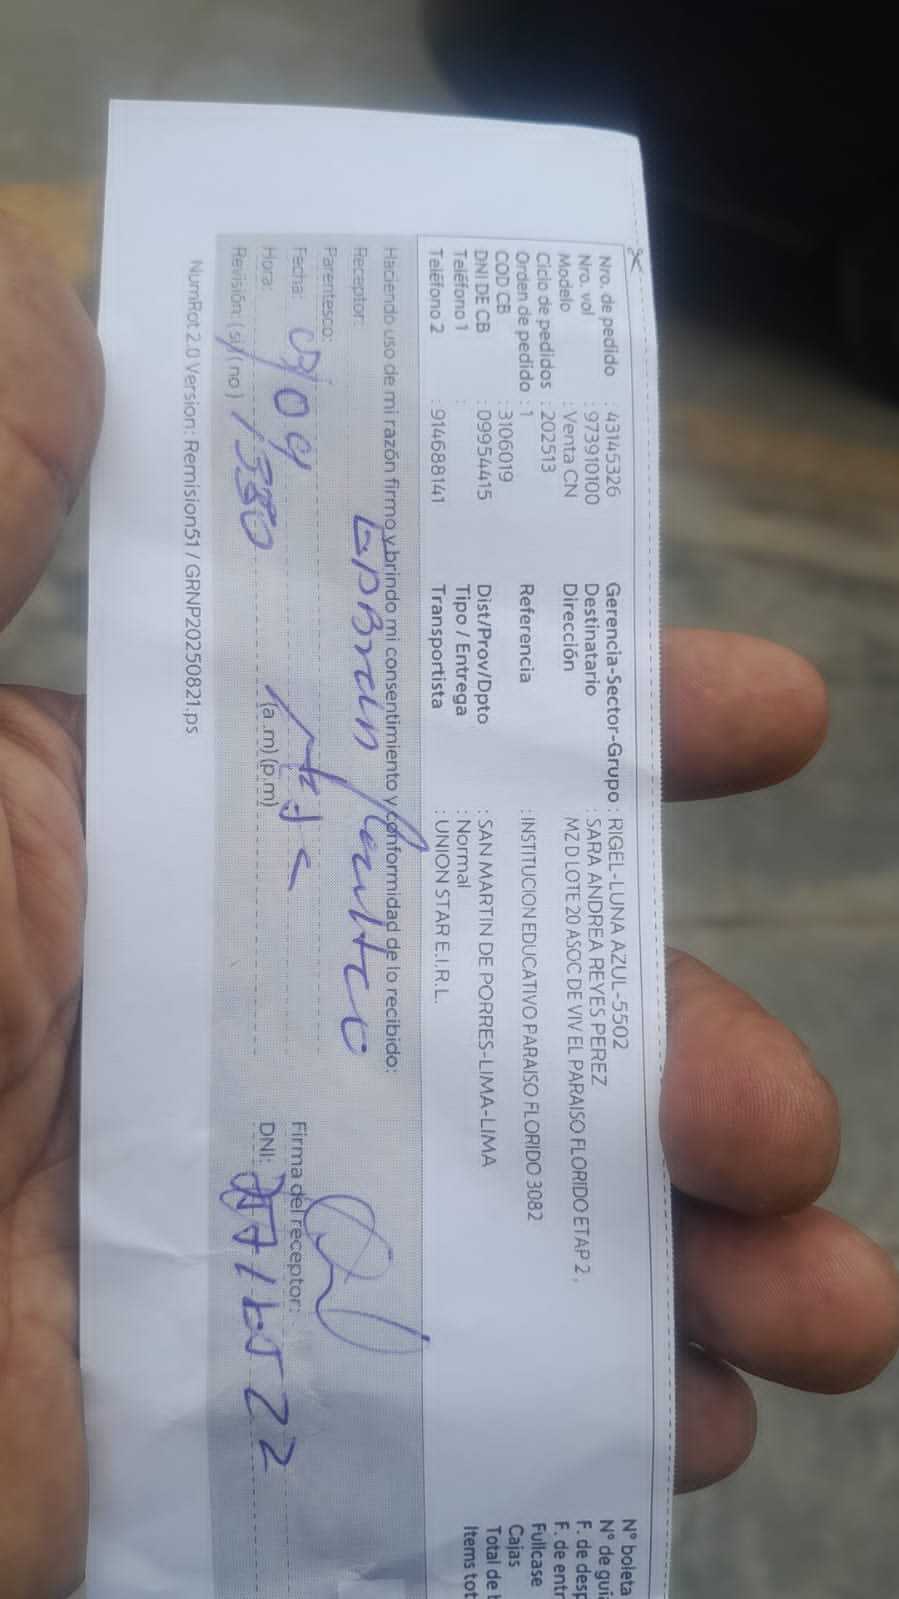 Nro. de pedido : 43145326 Gerencia-Sector-Grupo : RIGEL-LUNA AZUL-5502 N° boleta
Nro. vol : 973910100 Destinatario : SARA ANDREA REYES PEREZ N° de gui
Modelo : Venta CN Dirección : MZ D LOTE 20 ASOC DE VIV EL PARAISO FLORIDO ETAP 2 , F. de desp
Ciclo de pedidos : 202513 F. de entr
Orden de pedido : 1 Referencia : INSTITUCION EDUCATIVO PARAISO FLORIDO 3082 Fullcase
COD CB : 3106019 Cajas
DNI DE CB : 09954415 Dist/Prov/Dpto : SAN MARTIN DE PORRES-LIMA-LIMA Total de b
Teléfono 1 : Tipo / Entrega : Normal Items tot
Teléfono 2 : 914688141 Transportista : UNION STAR E.I.R.L.
Haciendo uso de mi razón firmo y brindo mi consentimiento y conformidad de lo recibido:
Receptor:
Parentesco:
Fecha: Firma del receptor:
Hora: (a.m) (p.m) DNI:
Revisión: (si) (no)
NumRot 2.0 Version: Remision51 / GRNP20250821.ps